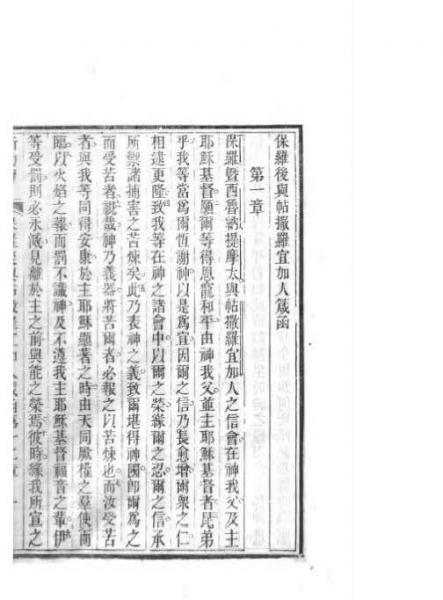 保羅後與帖撒羅宜加人箴函
第一章
保羅暨西魯嘝提摩太與帖撒羅宜加人之信會在神我父及主
耶穌基督願爾等得恩寵和平由神我父並主耶穌基督者昆弟
乎我等當爲爾恆謝神以是爲宜因爾之信乃長愈增爾衆之仁
相逮更隆致我等在神之諸會中以爾之榮緣爾之忍爾之信承
所禦諸捕害之苦煉矣此乃表神之義致爾堪得神國卽爾爲之
而受苦者視哉神乃義器將苦爾者必報之以苦煉也而汝受苦
者與我等同得安康於主耶穌顯著之時由天同厥權之羣使而
臨以火焰之報而罰不識神及不遵我主耶穌基督福音之輩伊
等受罰則必永滅見離於主之前與能之榮焉彼時緣我所宣之